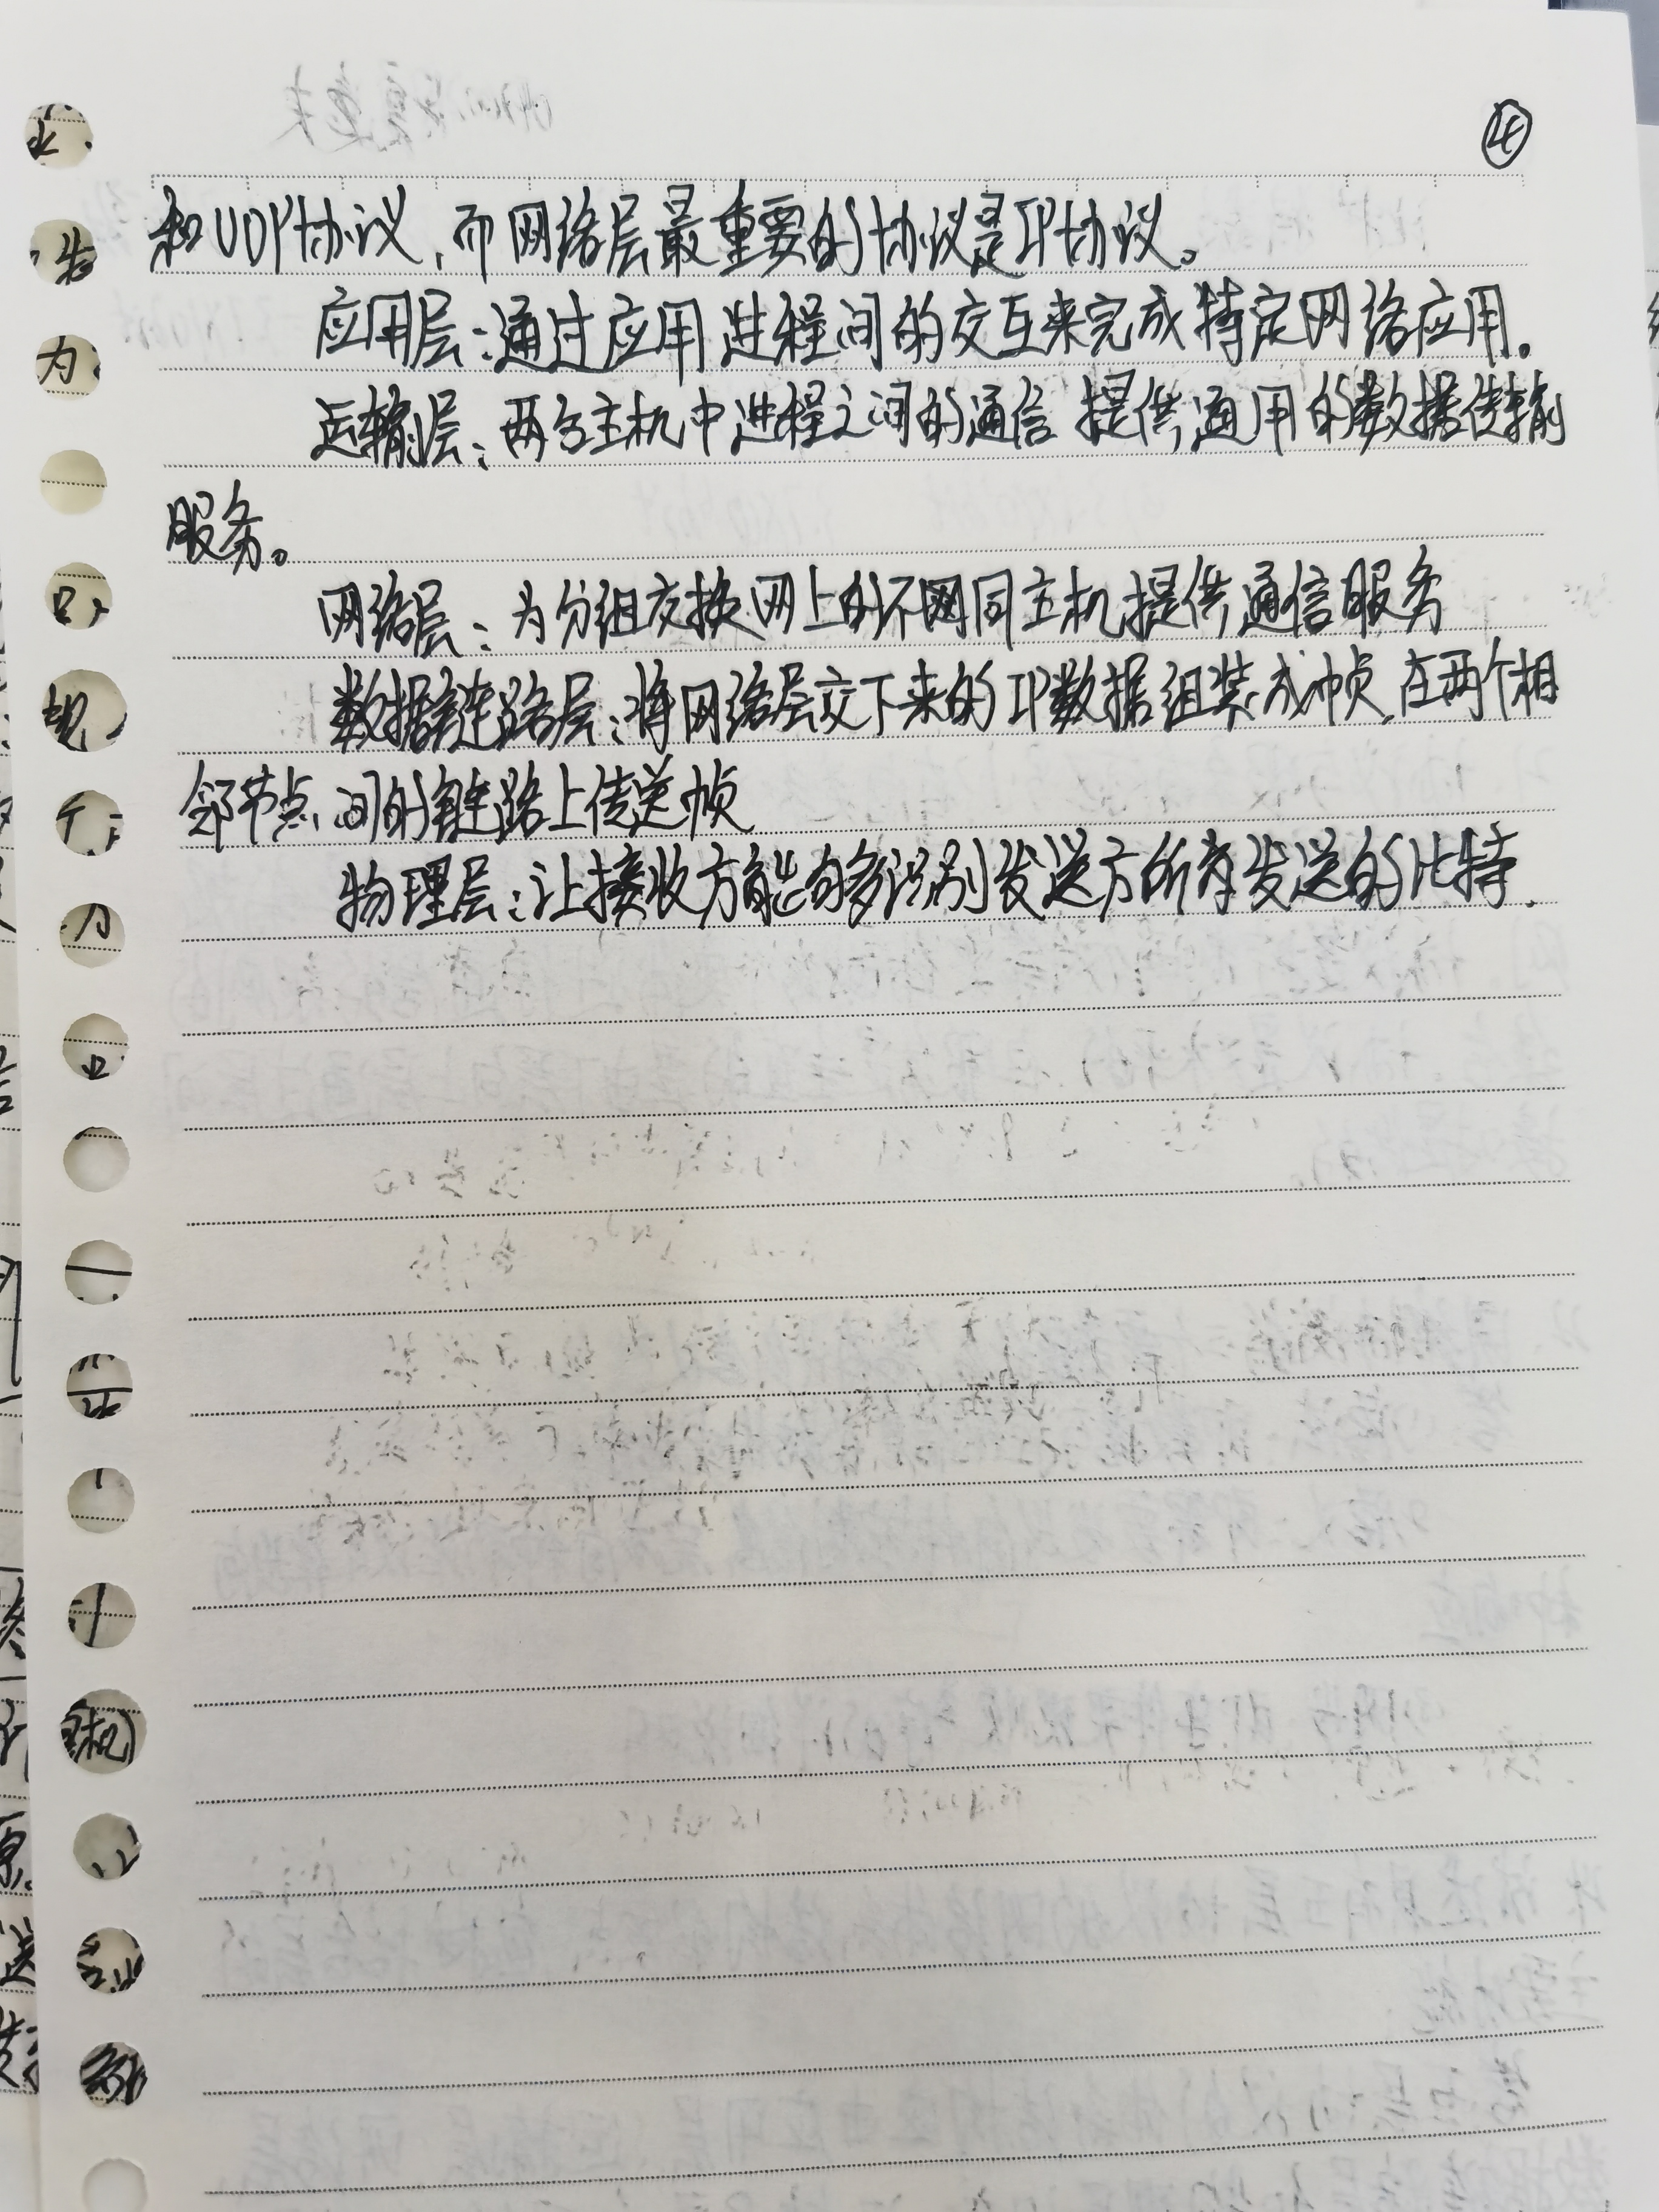 ④
和UDP协议,而网络层最重要的协议是IP协议。
应用层:通过应用进程间的交互来完成特定网络应用.
运输层:两台主机中进程之间的通信 提供通用的数据传输
服务。
网络层:为分组交换网上的不同主机提供通信服务
数据链路层:将网络层交下来的IP数据组装成帧,在两个相
邻节点间的链路上传送帧
物理层:让接收方能够识别发送方所有发送的比特.